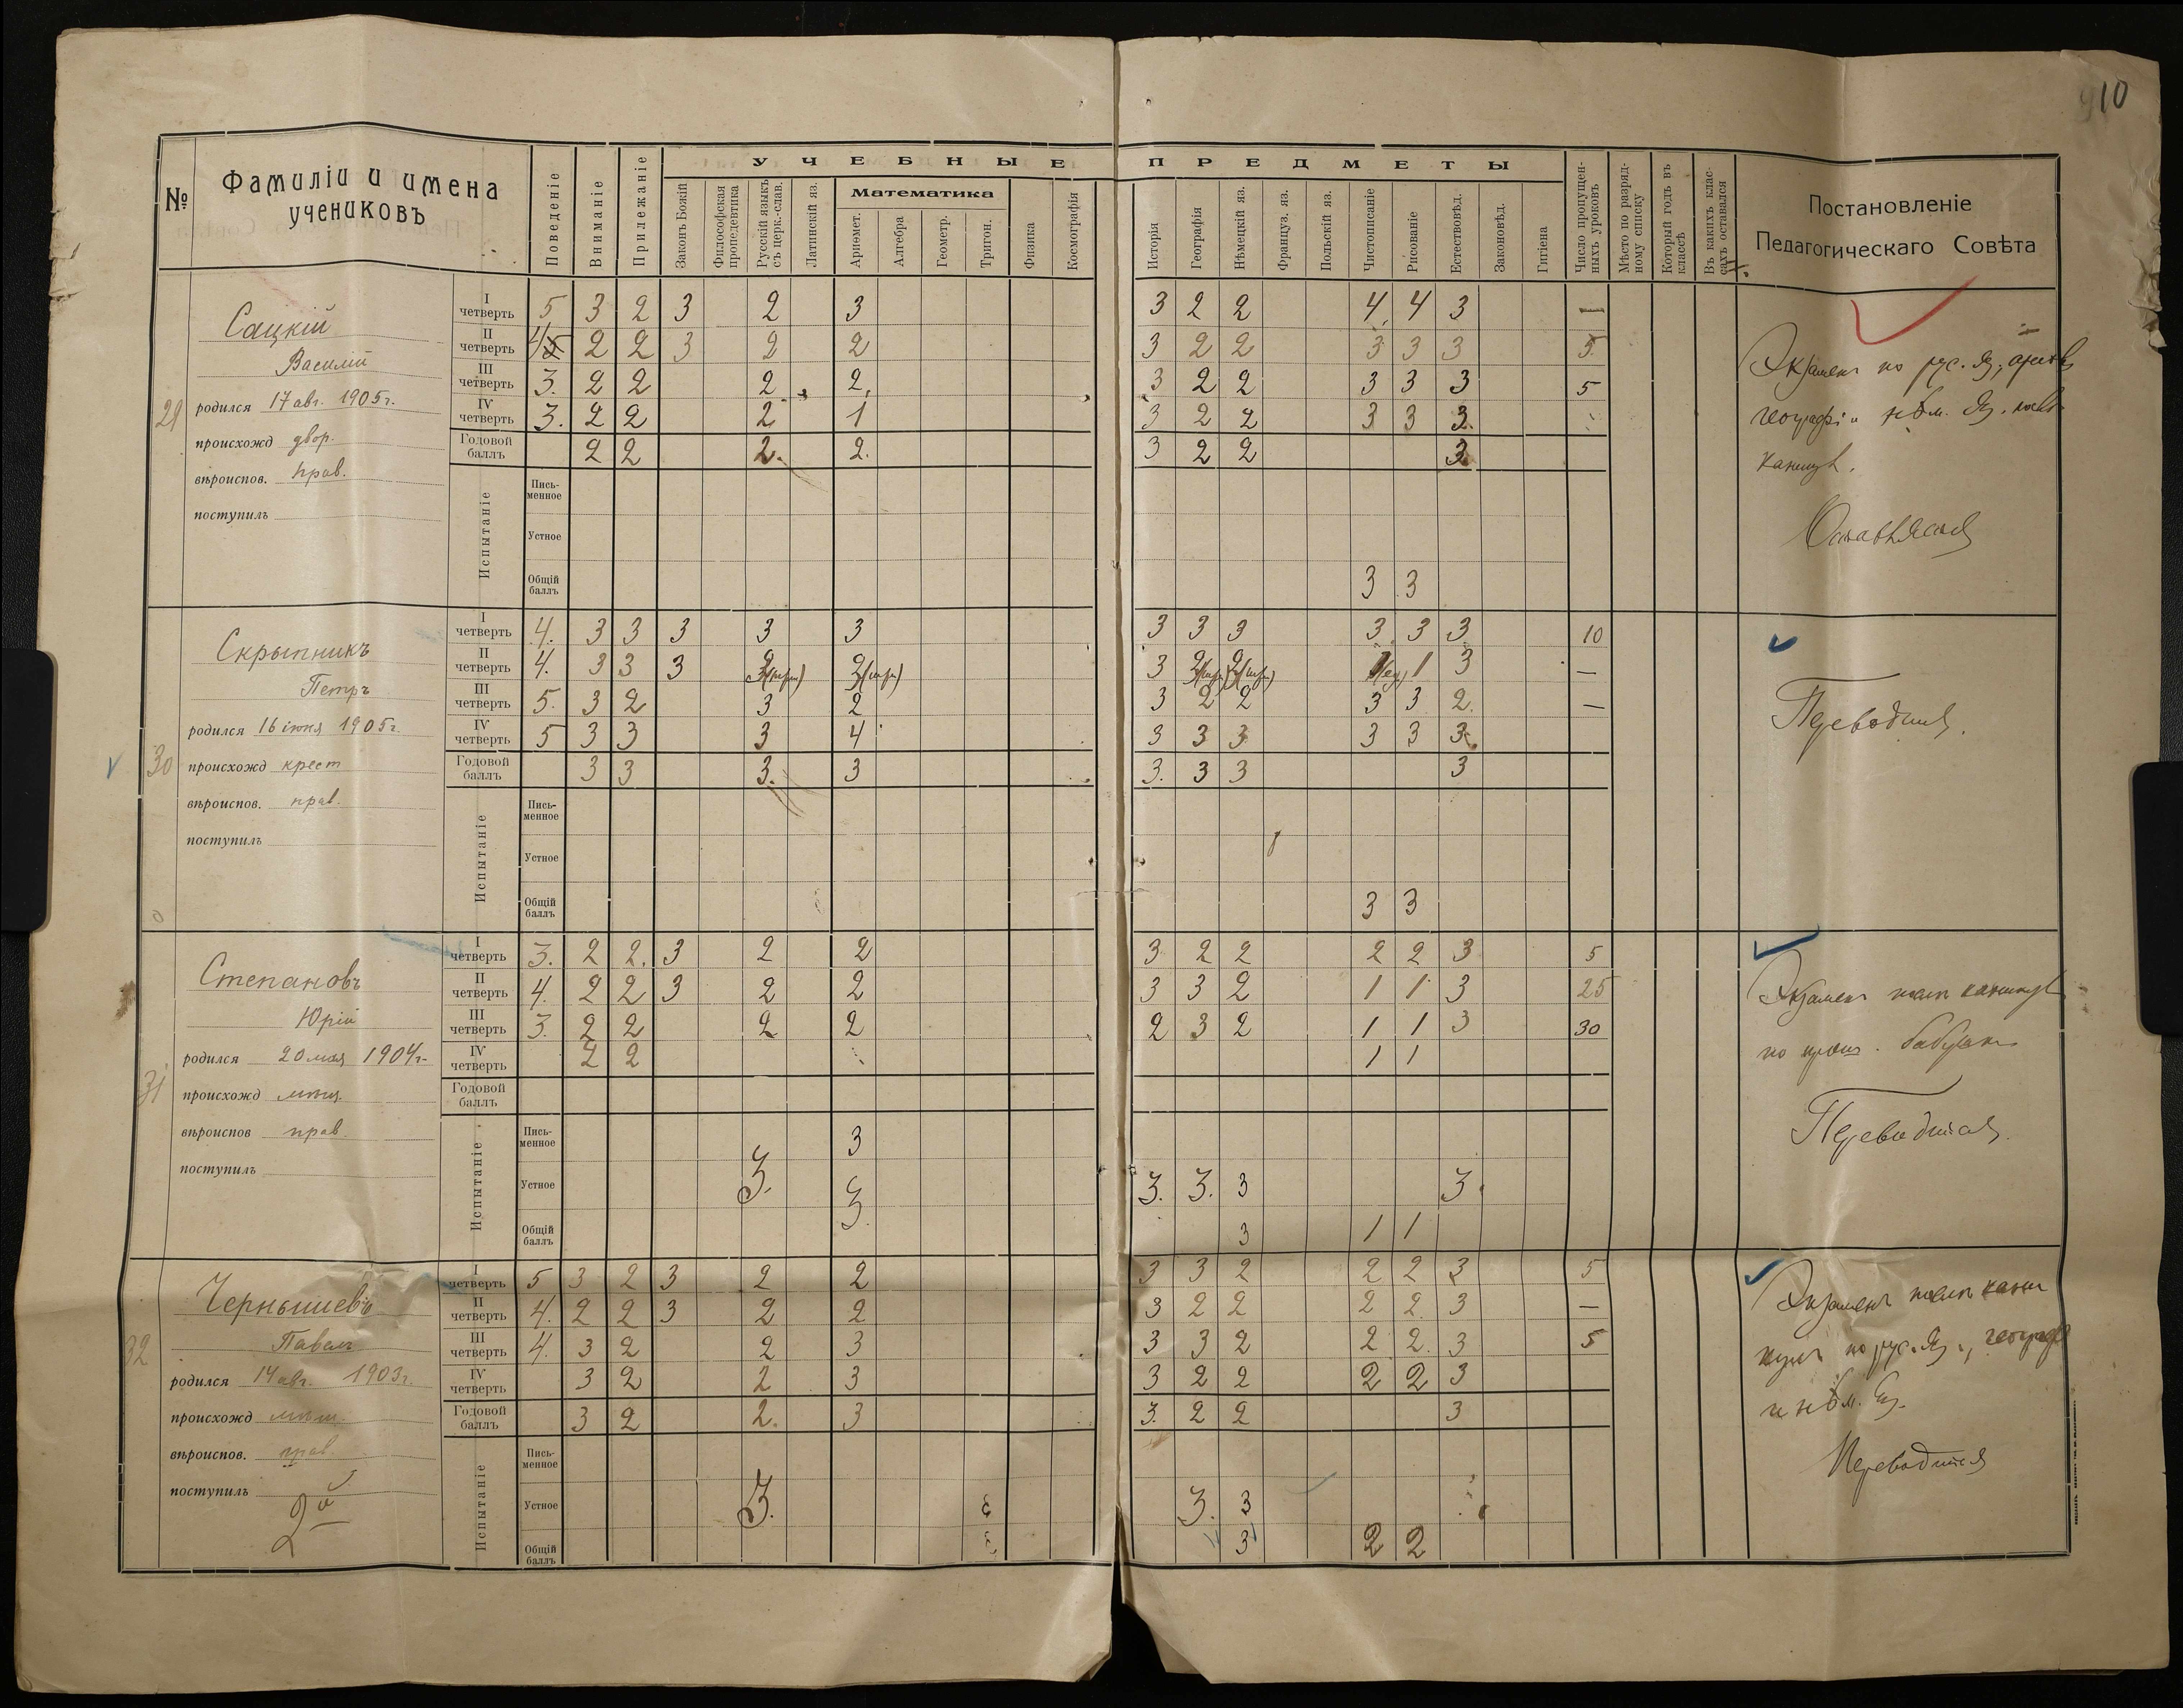 10
№ Фамиліи и имена учениковъ
Поведеніе
Вниманіе
Прилежаніе
УЧЕБНЫЕ ПРЕДМЕТЫ
Законъ Божій
Философская пропедевтика
Русскій языкъ съ церк.-слав.
Латинскій яз.
Математика
Ариѳмет.
Алгебра
Геометр.
Тригон.
Физика
Космографія
Исторія
Географія
Нѣмецкій яз.
Француз. яз.
Польскій яз.
Чистописаніе
Рисованіе
Естествовѣд.
Законовѣд.
Гигіена
Число пропущен-
ныхъ уроковъ
Мѣсто по разряд-
ному списку
Который годъ въ
классѣ
Въ какихъ клас-
сахъ оставался
Постановленіе
Педагогическаго Совѣта
29
Сацкій
Василій
родился 17 авг. 1905 г.
происхожд двор.
вѣроиспов. прав.
поступилъ
I четверть 5 3 2 3 2 3 3 2 2 4 4 3 —
II четверть 4 2 2 3 2 2 3 2 2 3 3 3 5
III четверть 3. 2 2 2 2 3 2 2 3 3 3 5
IV четверть 3. 2 2 2 1 3 2 2 3 3 3
Годовой баллъ 2 2 2. 2. 3 2 2 3
Испытаніе
Пись-
менное
Устное
Общій баллъ 3 3
Экзамен по рус. яз.,
географі и нѣм. яз.
каникул.
Оставляется
30
Скрыпникъ
Петръ
родился 16 іюня 1905 г.
происхожд крест
вѣроиспов. прав.
поступилъ
I четверть 4. 3 3 3 3 3 3 3 3 3 3 3 10
II четверть 4. 3 3 3 3 1 3 —
III четверть 5. 3 2 3 2 3 2 2 3 3 2. —
IV четверть 5 3 3 3 4 3 3 3 3 3 3
Годовой баллъ 3 3 3. 3 3. 3 3 3
Испытаніе
Пись-
менное
Устное
Общій баллъ 3 3
Переводится.
31
Степановъ
Юрій
родился 20 мая 1904 г.
происхожд мѣщ.
вѣроиспов прав.
поступилъ
I четверть 3. 2 2. 3 2 2 3 2 2 2 2 3 5
II четверть 4. 2 2 3 2 2 3 3 2 1 1 3 25
III четверть 3. 2 2 2 2 2 3 2 1 1 3 30
IV четверть 2 2 1 1
Годовой баллъ
Испытаніе
Пись-
менное 3
Устное 3. 3. 3. 3. 3 3.
Общій баллъ 3 1 1
Экзамен посл каникул
по
Переводится.
32
Чернышевъ
Павелъ
родился 14 авг. 1903 г.
происхожд мѣщ.
вѣроиспов. прав.
поступилъ
2й
I четверть 5 3 2 3 2 2 3 3 2 2 2 3 5
II четверть 4. 2 2 3 2 2 3 2 2 2 2. 3 —
III четверть 4. 3 2 2 3 3 3 2 2 2. 3 5
IV четверть 3 2 2 3 3 2 2 2 2 3
Годовой баллъ 3 2 2. 3 3. 2 2 3
Испытаніе
Пись-
менное
Устное 3. 3. 3
Общій баллъ 3 2 2
Экзамен посл кани
кул по рус. яз., географ
и нѣм. яз.
Переводится